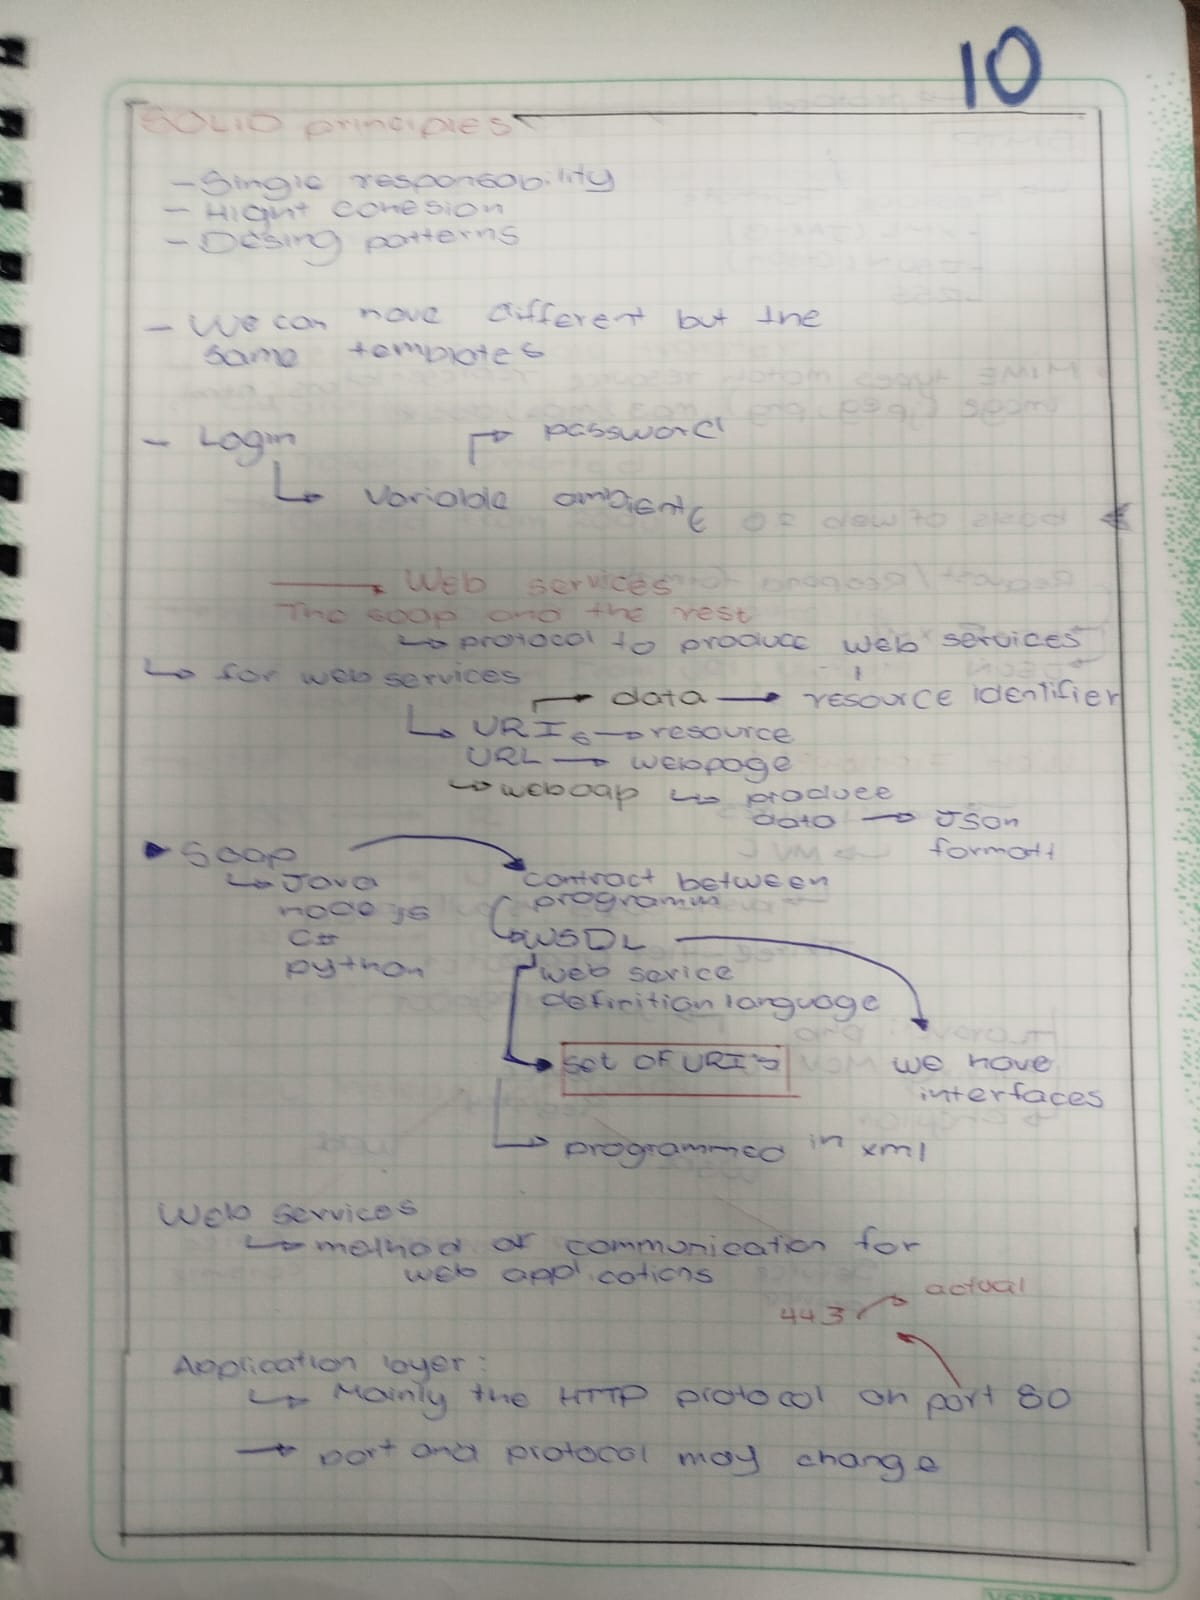 10
SOLID principles
- Single responsability
- Hight cohesion
- Desing patterns
- We can have different but the
same templates
- Login
→ password
↳ Variable ambiente
→ Web services
The soap and the rest
↳ protocol to produce web services
↳ for web services
→ data → resource identifier
↳ URIs → resource
URL → webpage
↳ weboap ↳ produce
data → Json
formatt
▶ Soap
↳ Java
node js
C#
python
contract between
programm
↳ WSDL
web serice
definition language
→ Set OF URI's
we have
interfaces
↳ programmed in xml
Web services
↳ method of communication for
web applications
443 → actual
Application layer:
↳ Mainly the HTTP protocol on port 80
→ port and protocol may change